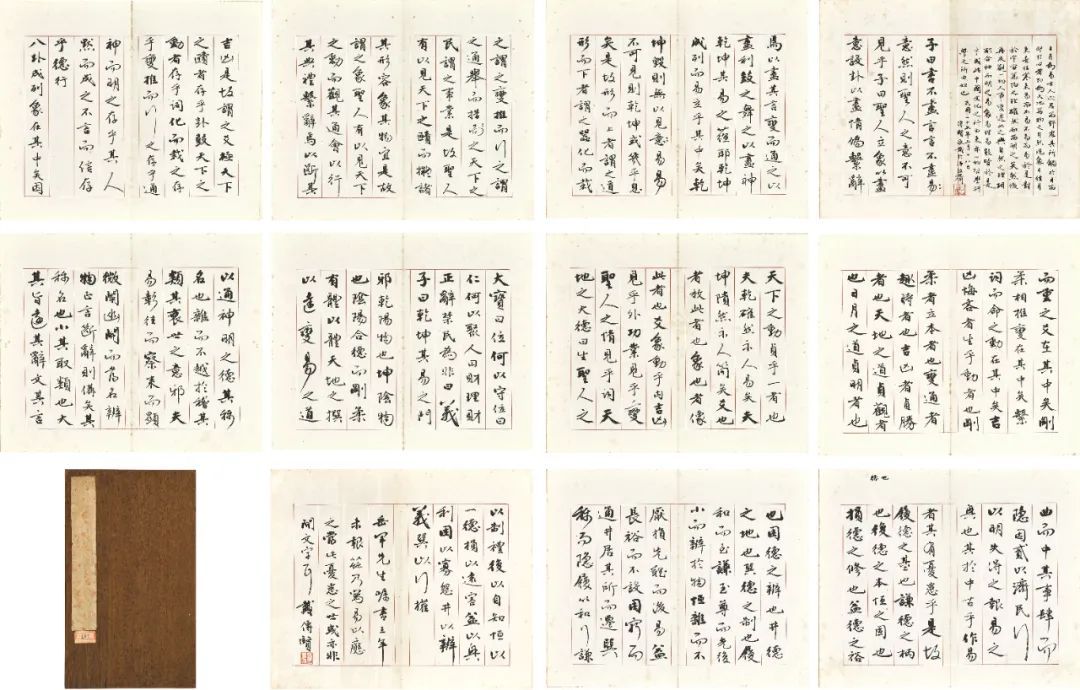 子曰書不盡言言不盡
意然則聖人之意不可
見乎子曰聖人立象以盡
意設卦以盡情偽繫辭
焉以盡其言變而通之以
盡利鼓之舞之以盡神
乾坤其易之蘊耶乾坤
成列而易立乎其中矣乾
坤毀則無以見易易
不可見則乾坤或幾乎息
矣是故形而上者謂之道
形而下者謂之器化而裁
之謂之變推而行之謂
之通舉而措之天下之
民謂之事業是故聖人
有以見天下之賾而擬諸
其形容象其物宜是故
謂之象聖人有以見天下
之動而觀其通會以行
其典禮繫辭焉以斷其
吉凶是故謂之爻極天下
之賾者存乎卦鼓天下之
動者存乎詞化而裁之存
乎變推而行之存乎通
神而明之存乎其人
默而成之不言而信存
乎德行
八卦成列象在其中矣因
而重之爻在其中矣剛
柔相推變在其中矣繫
詞而命之動在其中矣吉
凶悔吝者生乎動者也剛
柔者立本者也變通者
趣時者也吉凶者貞勝
者也天地之道貞觀者
也日月之道貞明者也
天下之動貞乎一者也
夫乾確然示人易矣夫
坤隤然示人簡矣爻也
者效此者也象也者像
此者也爻象動乎內吉凶
見乎外功業見乎變
聖人之情見乎詞天
地之大德曰生聖人之
大寶曰位何以守位曰
仁何以聚人曰財理財
正辭禁民為非曰義
子曰乾坤其易之門
邪乾陽物也坤陰物
也陰陽合德而剛柔
有體以體天地之撰
以達變易之道
以通神明之德其稱
名也雜而不越於稽其
類其衰世之意邪夫
易彰往而察來而顯
微闡幽開而當名辨
物正言斷辭則備矣其
稱名也小其取類也大
其旨遠其辭文其言
曲而中其事肆而
隱因貳以濟民行
以明失得之報易之
興也其於中古乎作易
者其有憂患乎是故
履德之基也謙德之柄
也復德之本恆之固也
損德之修也益德之裕
也困德之辨也井德
之地也巽德之制也履
和而至謙至尊而光復
小而辨於物恆雜而不
厭損先難而後易益
長裕而不設困窮而
通井居其所而遷巽
稱而隱履以和行謙
以制禮復以自知恆以
一德損以遠害益以興
利困以寡怨井以辨
義巽以行權
岳軍先生囑書三年
未報茲乃寫易以應
之當此憂患之世或亦非
閒文字耳 戴傳賢